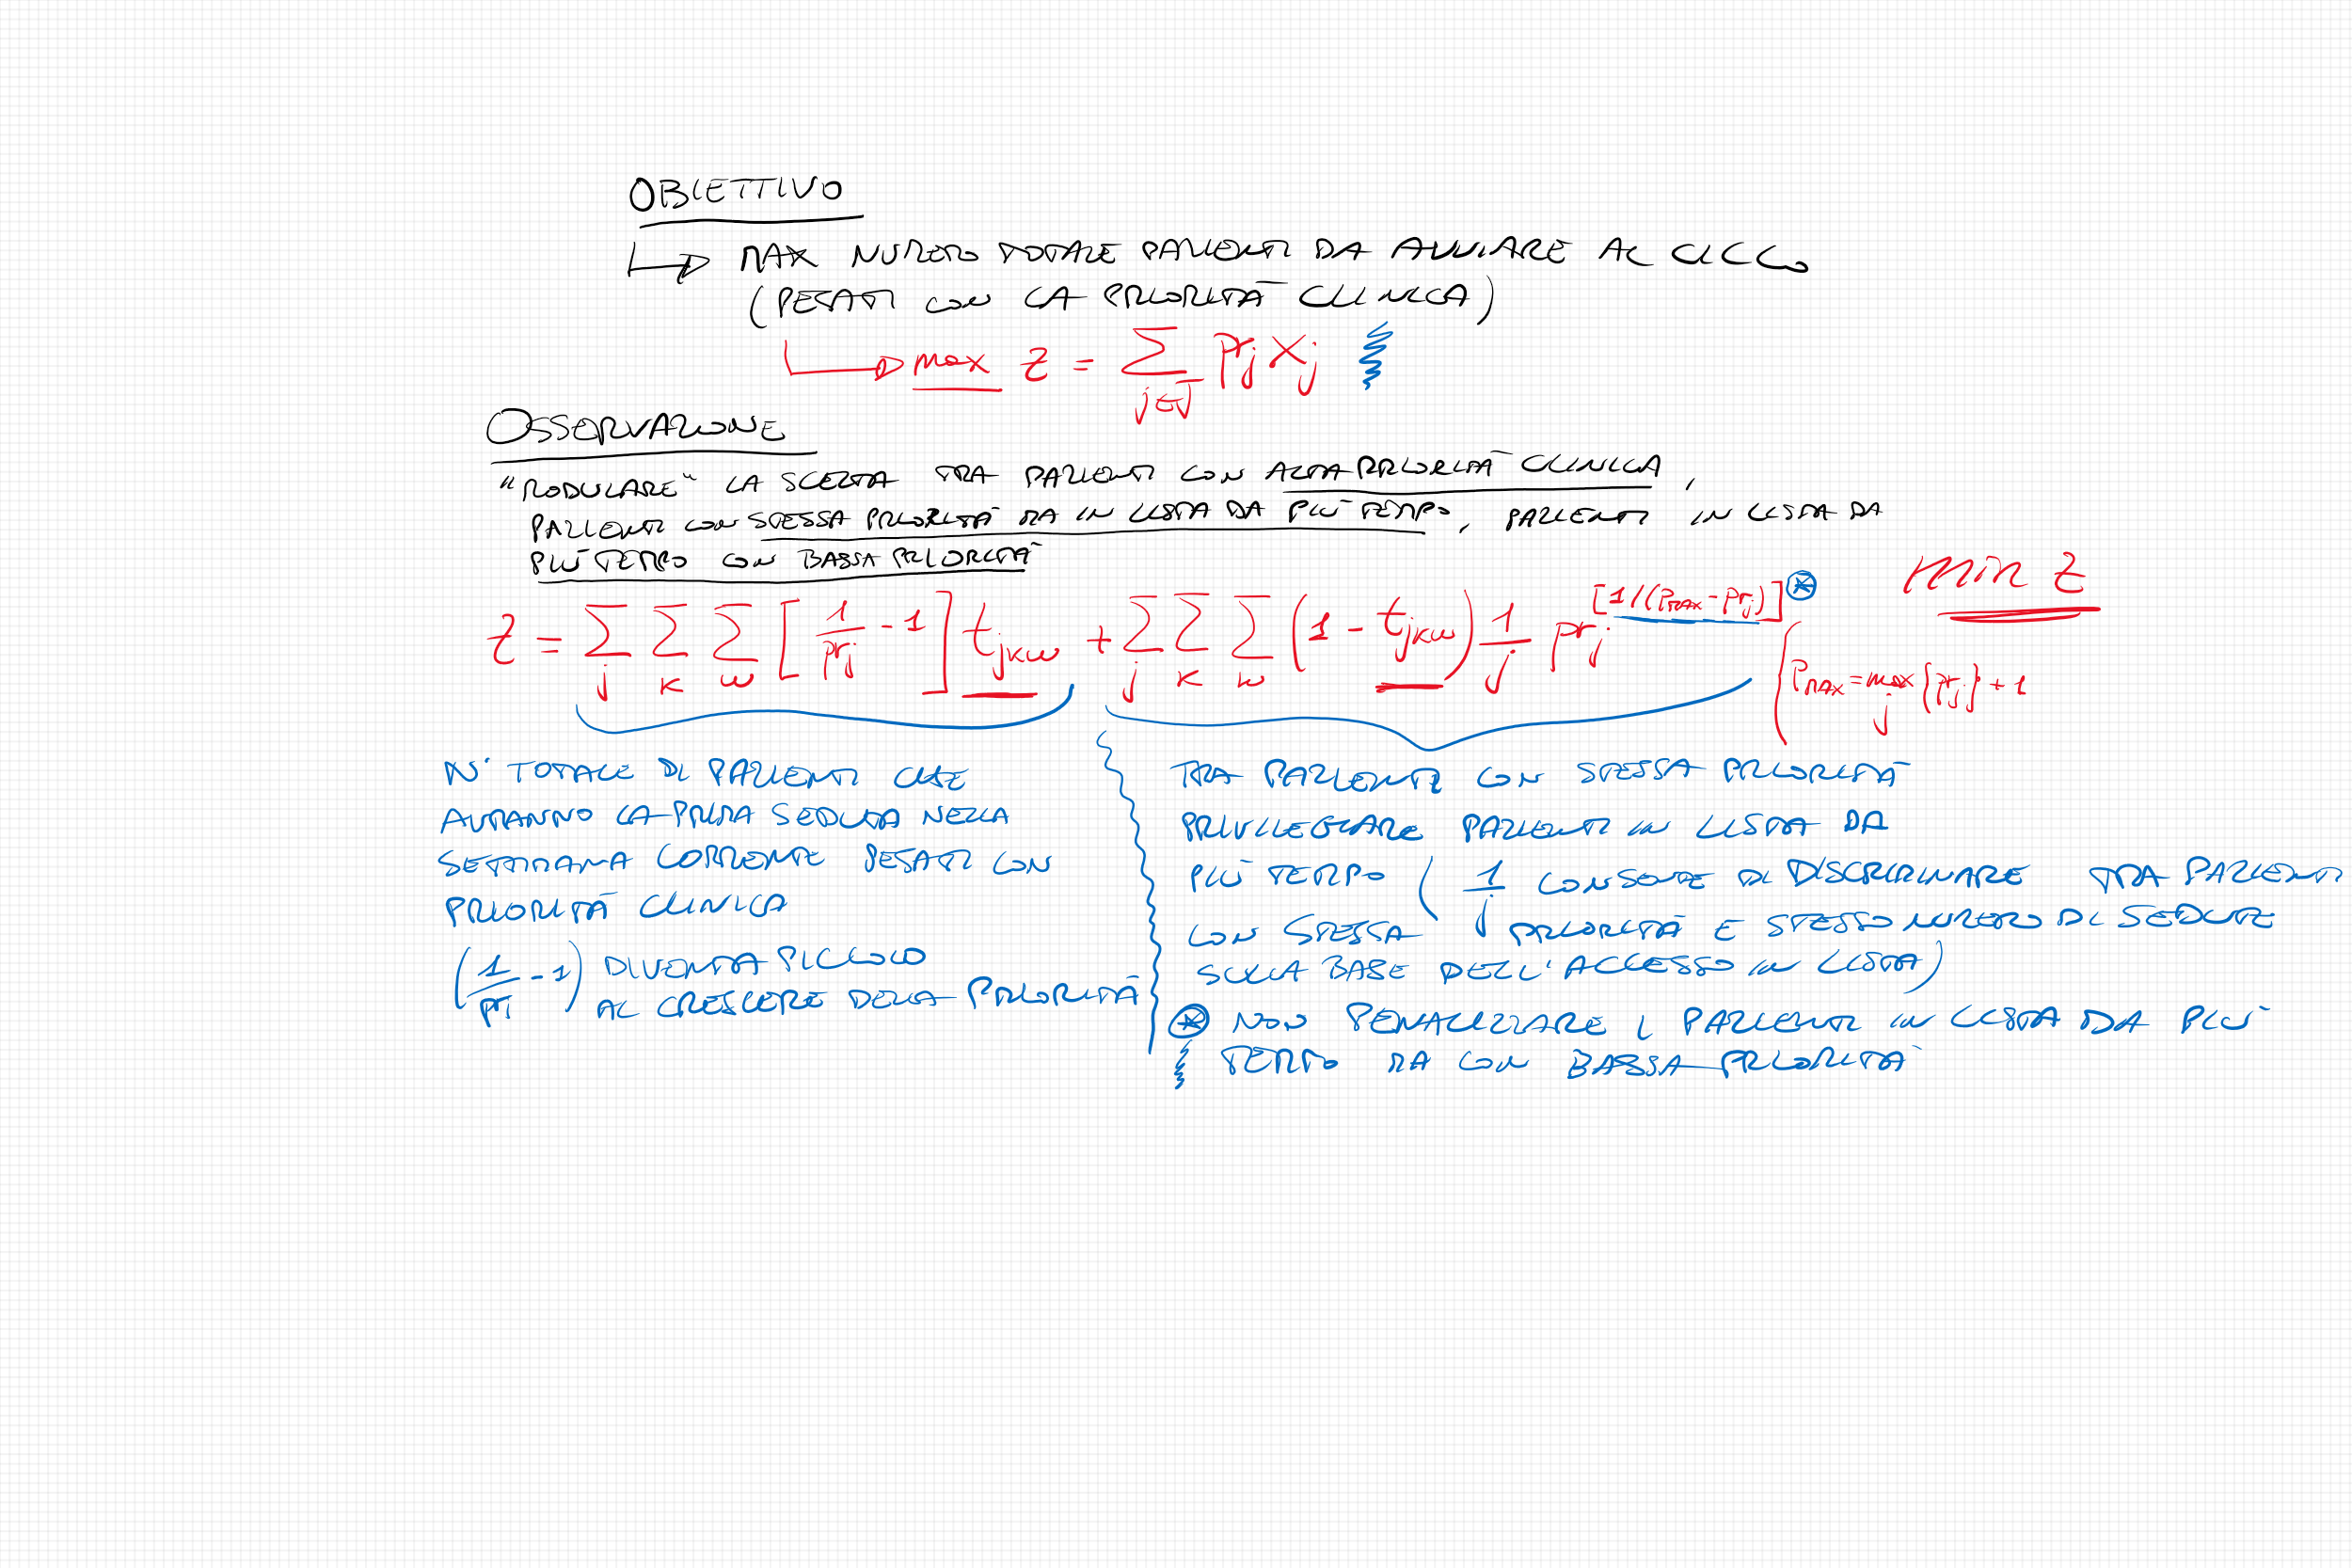 OBIETTIVO
MAX NUMERO TOTALE PAZIENTI DA AVVIARE AL CICLO
(PESATI CON LA PRIORITÀ CLINICA)
max z = ∑_{j∈J} pr_j x_j
OSSERVAZIONE
"MODULARE" LA SCELTA TRA PAZIENTI CON ALTA PRIORITÀ CLINICA,
PAZIENTI CON STESSA PRIORITÀ MA IN LISTA DA PIÙ TEMPO, PAZIENTI IN LISTA DA
PIÙ TEMPO CON BASSA PRIORITÀ
min z
z = ∑_j ∑_k ∑_w [1/pr_j - 1] t_jkw + ∑_j ∑_k ∑_w (1 - t_jkw) 1/j pr_j^[1/(P_MAX - pr_j)] ⊛
P_MAX = max_j {pr_j} + 1
N° TOTALE DI PAZIENTI CHE
AVRANNO LA PRIMA SEDUTA NELLA
SETTIMANA CORRENTE PESATI CON
PRIORITÀ CLINICA
(1/pr_j - 1) DIVENTA PICCOLO
AL CRESCERE DELLA PRIORITÀ
TRA PAZIENTI CON STESSA PRIORITÀ
PRIVILEGIARE PAZIENTI IN LISTA DA
PIÙ TEMPO (1/j CONSENTE DI DISCRIMINARE TRA PAZIENTI
CON STESSA PRIORITÀ E STESSO NUMERO DI SEDUTE
SULLA BASE DELL'ACCESSO IN LISTA)
⊛ NON PENALIZZARE I PAZIENTI IN LISTA DA PIÙ
TEMPO MA CON BASSA PRIORITÀ